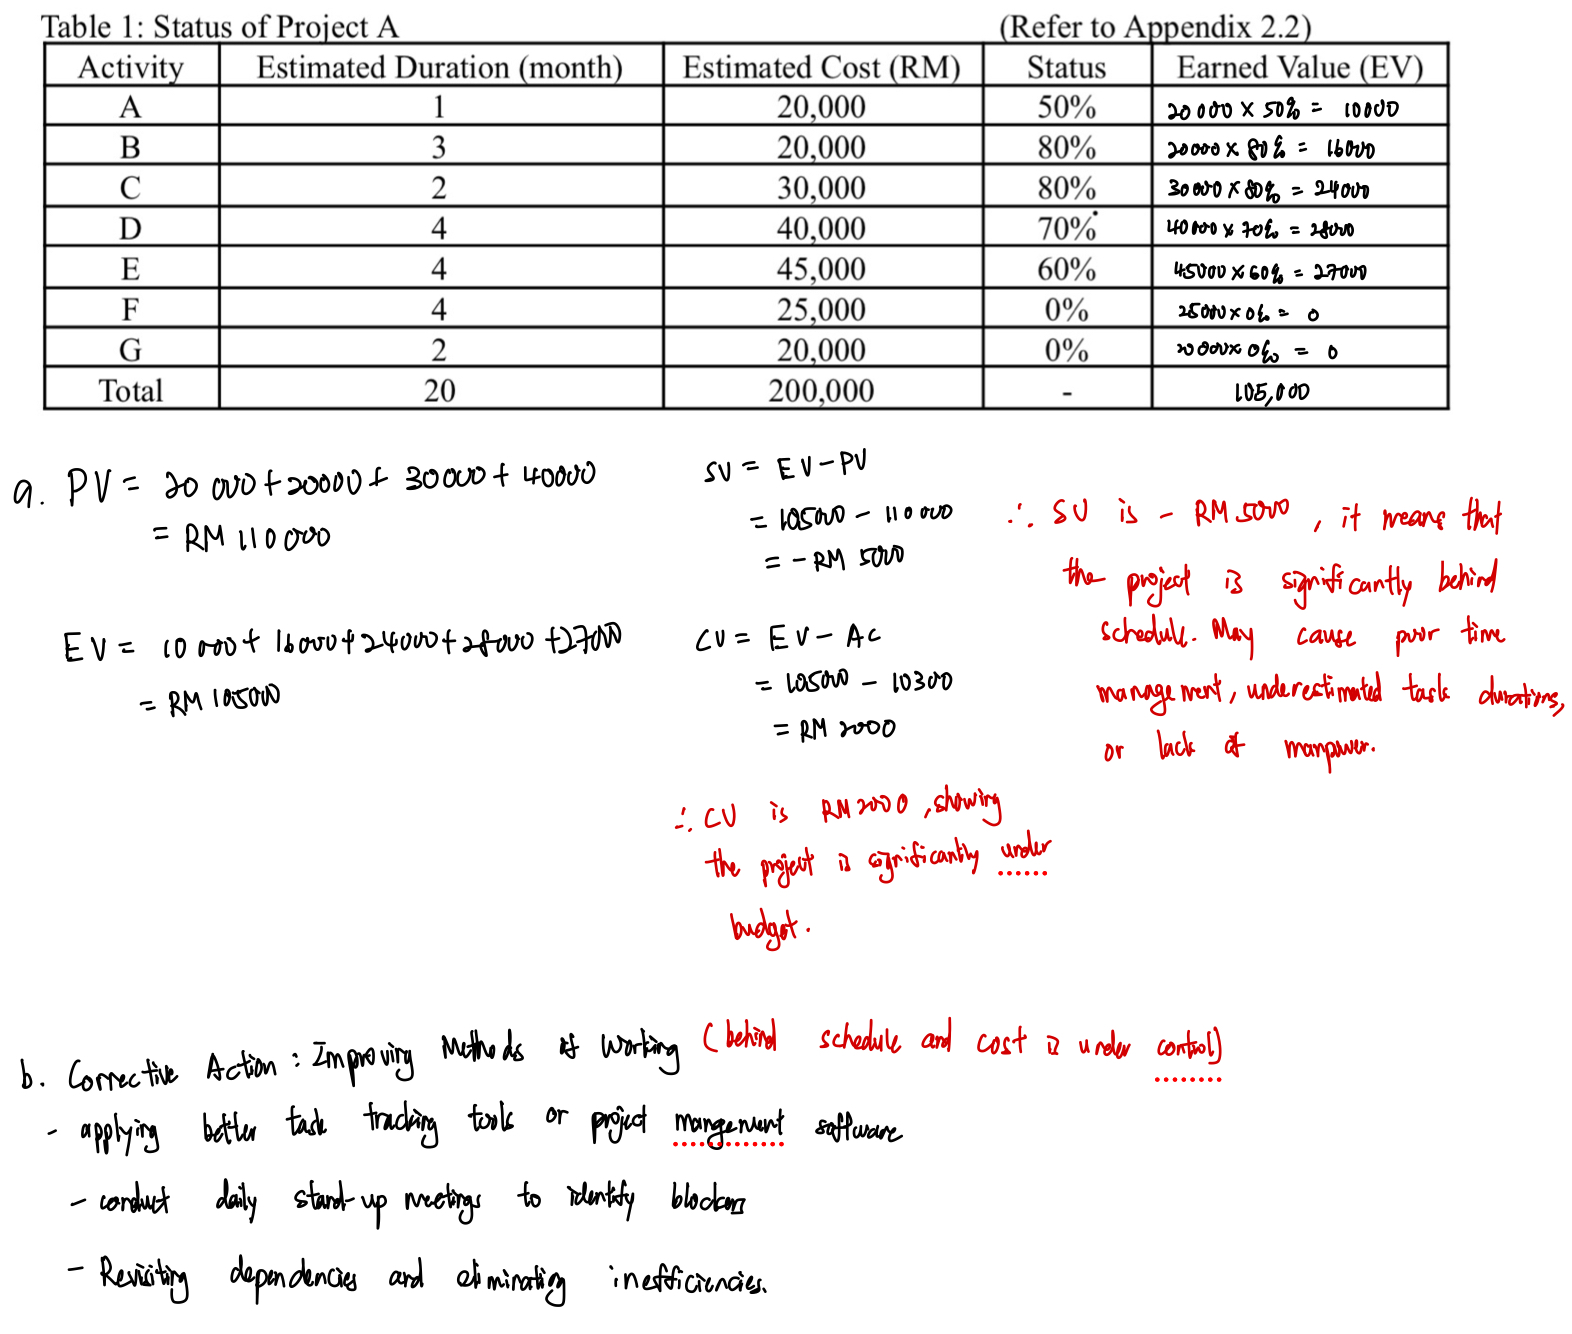 Table 1: Status of Project A (Refer to Appendix 2.2)
Activity Estimated Duration (month) Estimated Cost (RM) Status Earned Value (EV)
A 1 20,000 50% 20 000 × 50% = 10000
B 3 20,000 80% 20000 × 80% = 16000
C 2 30,000 80% 30000 × 80% = 24000
D 4 40,000 70% 40000 × 70% = 28000
E 4 45,000 60% 45000 × 60% = 27000
F 4 25,000 0% 25000 × 0% = 0
G 2 20,000 0% 20000 × 0% = 0
Total 20 200,000 - 105,000
a. PV = 20 000 + 20000 + 30000 + 40000
= RM 110 000
EV = 10 000 + 16000 + 24000 + 28000 + 27000
= RM 105000
SV = EV - PV
= 105000 - 110 000
= - RM 5000
CV = EV - AC
= 105000 - 10300
= RM 2000
∴ SV is - RM 5000, it means that
the project is significantly behind
schedule. May cause poor time
management, underestimated task durations,
or lack of manpower.
∴ CV is RM 2000, showing
the project is significantly under
budget.
b. Corrective Action : Improving Methods of Working (behind schedule and cost is under control)
- applying better task tracking tools or project mangement software
- conduct daily stand-up meetings to identify blockers
- Revisiting dependencies and eliminating inefficiencies.